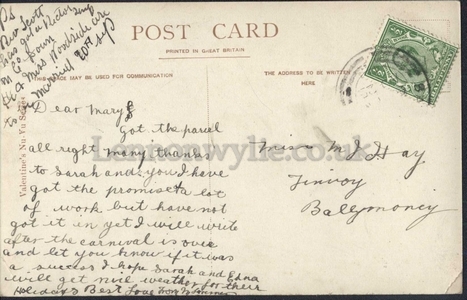 PS
Rev Scott
has got a Rectorship
in Co. Down
& Miss Woodside are
to be married 20th Sep
POST CARD
PRINTED IN GREAT BRITAIN
THIS SPACE MAY BE USED FOR COMMUNICATION
THE ADDRESS TO BE WRITTEN
HERE
Valentine's Nu-Vu Series
Dear Mary
Got the parcel
all right many thanks
to Sarah and you I have
got the promise of a lot
of work but have not
got it in yet I will write
after the carnival is over
and let you know if it was
a success I hope Sarah and Edna
will get nice weather for their
Holidays Best Love from
Miss M J Hay
Finvoy
Ballymoney
Lennonwylie.co.uk